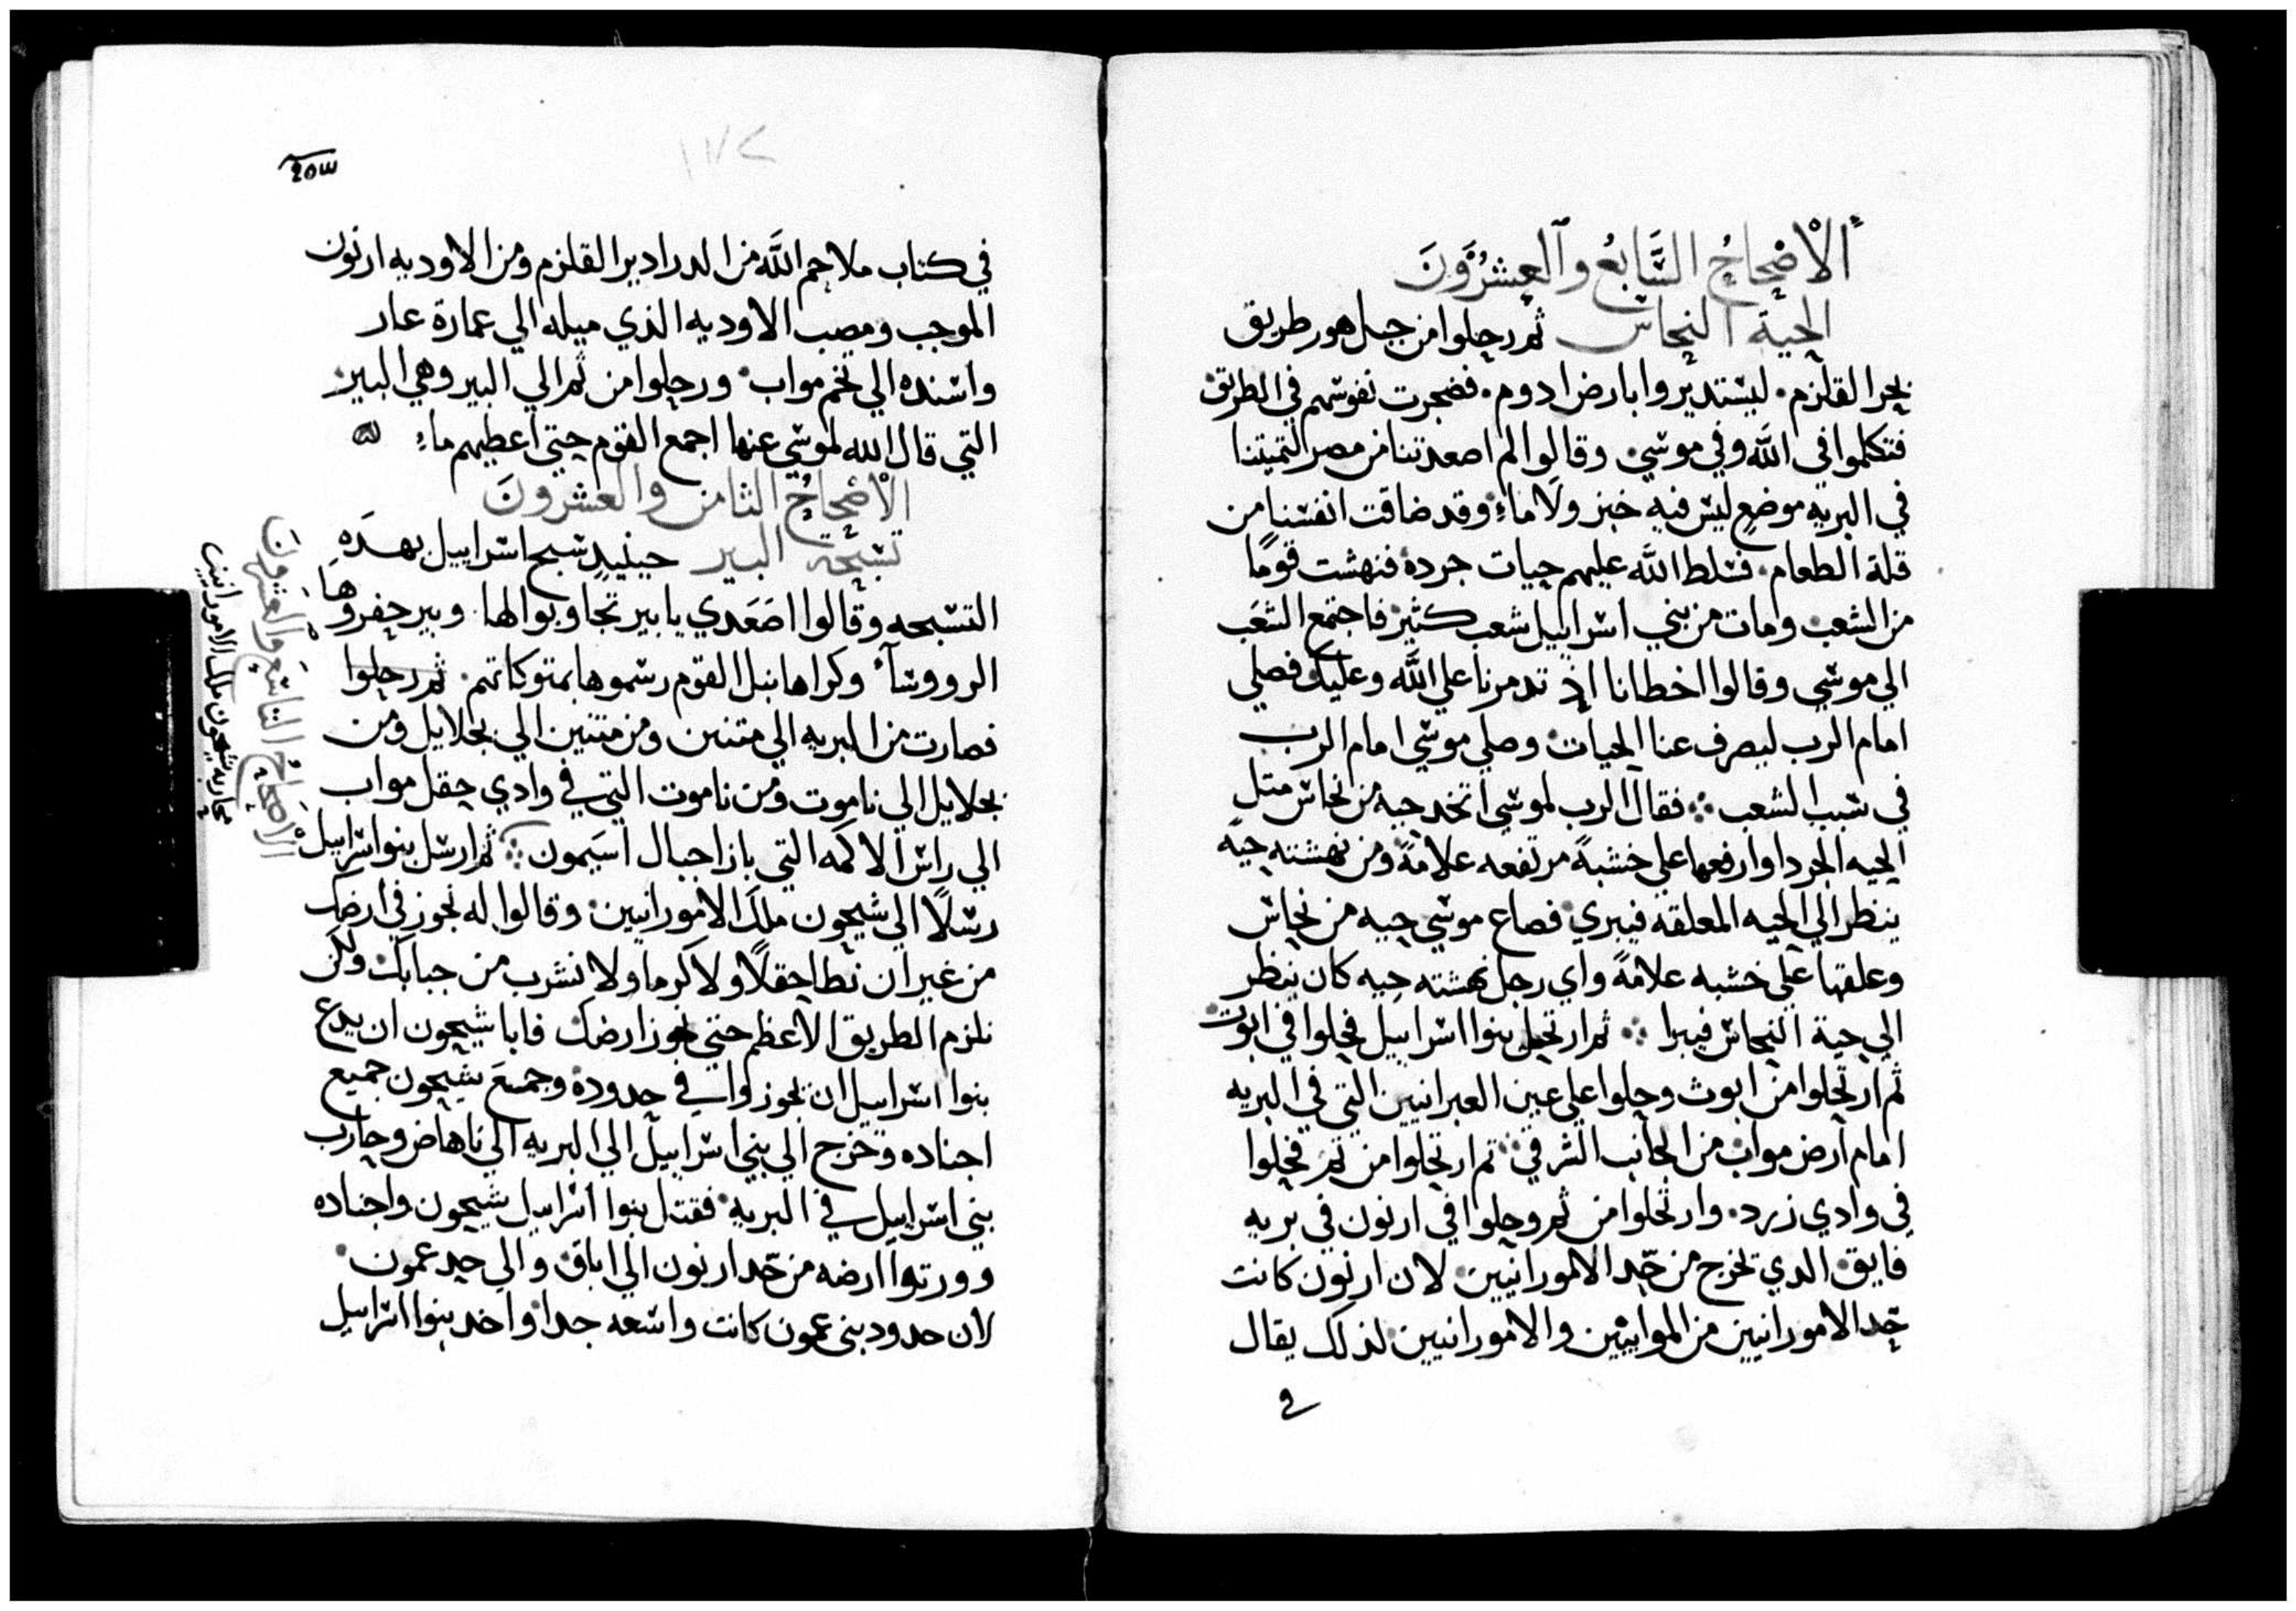 الاصحاح السابع والعشرون
الحية النحاس ثم رحلوا من جبل هور طريق
بحر القلزم. ليستديروا بارض ادوم. فضجرت نفوسهم في الطريق
فتكلموا في الله وفي موسي. وقالوا لم اصعدتنا من مصر لتميتنا
في البريه موضع ليس فيه خبز ولا ماء وقد ضاقت انفسنا من
قلة الطعام. فسلط الله عليهم حيات جرده فنهشت قومًا
من الشعب. ومات من بني اسراييل شعب كثير فاجتمع الشعب
الي موسي وقالوا اخطانا اذ تدمرنا علي الله وعليك فصلي
امام الرب ليصرف عنا الحيات. وصلي موسي امام الرب
في سبب الشعب ∴ فقال الرب لموسي اتخد حيه من نحاس متل
الحيه الجردا وارفعها علي خشبةً مرتفعه علامةً ومن نهشته حيه
ينظر الي الحيه المعلقه فيبري. فصاع موسي حيه من نحاس
وعلقها علي خشبه علامةً واي رجل نهشته حيه كان ينظر
الي حية النحاس فيبرا ∴ ثم ارتحل بنوا اسراييل فحلوا في ابوت
ثم ارتحلوا من ابوث وحلوا علي عين العبرانيين التي في البريه
امام ارض مواب من الجانب الشرقي. تم ارتحلوا من تم فحلوا
في وادي زرد. وارتحلوا من ثم وحلوا في ارنون في بريه
فايق. الدي تخرج من حد الامورانيين. لان ارنون كانت
حد الامورانيين من الموابيين والامورانيين. لذلك يقال
في
٢٥٣
١٧٢
في كتاب ملاحم الله من الدرادير القلزم ومن الاوديه ارنون
الموجب ومصب الاوديه الذي ميله الي عمارة عار
واسنده الي تخم مواب. ورحلوا من ثم الي البير وهي البير
التي قال الله لموسي عنها اجمع القوم حتي اعطيهم ماء
الاصحاح الثامن والعشرون
تسبحة البير حينيدٍ سبح اسراييل بهدَه
التسبحه وقالوا اصعَدي يا بير تجاوبوا لها. وبير حفروها
الرووسآء وكراها نبل القوم رسموها بمتوكاتهم. ثم رحلوا
فصارت من البريه الي متنين ومن متنين الي بحلايل ومن
بحلايل الي ناموت ومن ناموت التي في وادي حقل مواب
الي راس الاكمه التي بازا جبال اسيمون ∴ ثم ارسل بنوا اسراييل
رسلًا الي شيحون ملك الامورانيين. وقالوا له نجوز في ارضك
من غير ان نطا حقلًا ولا كرما ولا نشرب من جبابك. ولكن
نلزم الطريق الاعظم حتي نجوز ارضك فابا شيحون ان يدع
بنوا اسراييل ان يجوزوا في حدوده وجمع شيحون جميع
اجناده وخرج الي بني اسراييل الي البريه الي ناهاص وحارب
بني اسراييل في البريه. فقتل بنوا اسراييل شيحون واجناده
وورتوا ارضه من حد ارنون الي اباق والي حد عمون.
لان حدود بني عمون كانت واسعه جدا واخد بنوا اسراييل
الاصحاح التاسع والعشرون
محاربه شيحون ملك الامورانيين